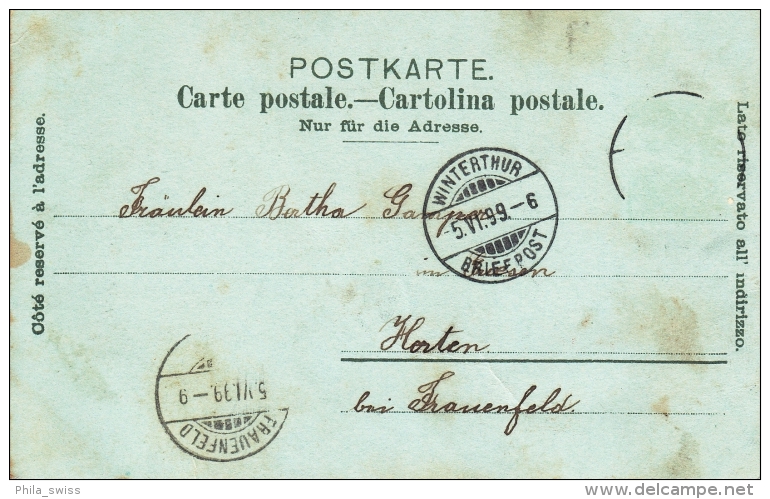 POSTKARTE.
Carte postale.—Cartolina postale.
Nur für die Adresse.
Côté reservé à l'adresse.
Lato riservato all' indirizzo.
WINTERTHUR
5.VI.99.-6
BRIEFPOST
Fräulein Bertha Gamper
im
Horten
bei Frauenfeld.
5.VI.99-9
FRAUENFELD
Phila_swiss
www.delcampe.net